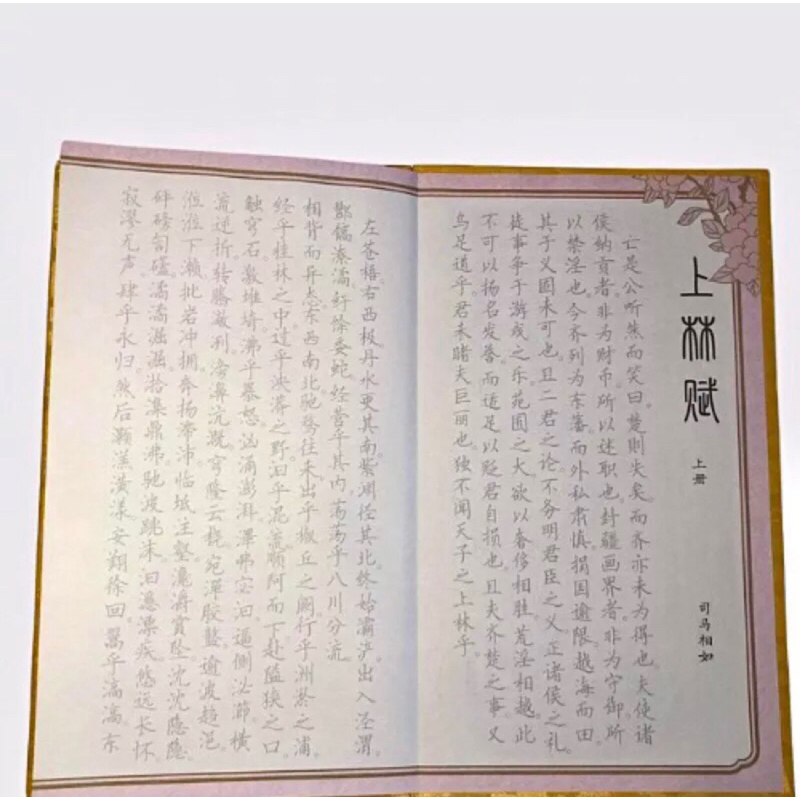 上林赋
上册
司马相如
亡是公听然而笑曰。楚则失矣。而齐亦未为得也。夫使诸
侯纳贡者。非为财币。所以述职也。封疆画界者。非为守御。所
以禁淫也。今齐列为东藩。而外私肃慎。捐国逾限。越海而田。
其于义固未可也。且二君之论。不务明君臣之义。正诸侯之礼。
徒事争于游戏之乐。苑囿之大。欲以奢侈相胜。荒淫相越。此
不可以扬名发誉。而适足以贬君自损也。且夫齐楚之事。又
乌足道乎。君未睹夫巨丽也。独不闻天子之上林乎。
左苍梧。右西极。丹水更其南。紫渊径其北。终始灞浐。出入泾渭。
酆镐潦潏。纡馀委蛇。经营乎其内。荡荡乎八川分流。
相背而异态。东西南北。驰骛往来。出乎椒丘之阙。行乎洲淤之浦。
经乎桂林之中。过乎泱漭之野。汩乎混流。顺阿而下。赴隘狭之口。
触穹石。激堆埼。沸乎暴怒。汹涌澎湃。滭弗宓汩。逼侧泌瀄。横
流逆折。转腾潎洌。滂濞沆溉。穹隆云桡。宛潬胶盭。逾波趋浥。
涖涖下濑。批岩冲拥。奔扬滞沛。临坻注壑。瀺灂霣坠。沈沈隐隐。
砰磅訇礚。潏潏淈淈。湁潗鼎沸。驰波跳沫。汩㴔漂疾。悠远长怀。
寂漻无声。肆乎永归。然后灏溔潢漾。安翔徐回。翯乎滈滈。东